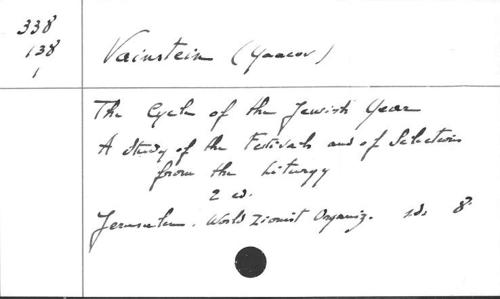 338
138
1
Vainstein (Yaacov)
The Cycle of the Jewish Year
A Study of the Festivals and of Selections
from the Liturgy
2 ed.
Jerusalem. World Zionist Organiz. sd. 8º